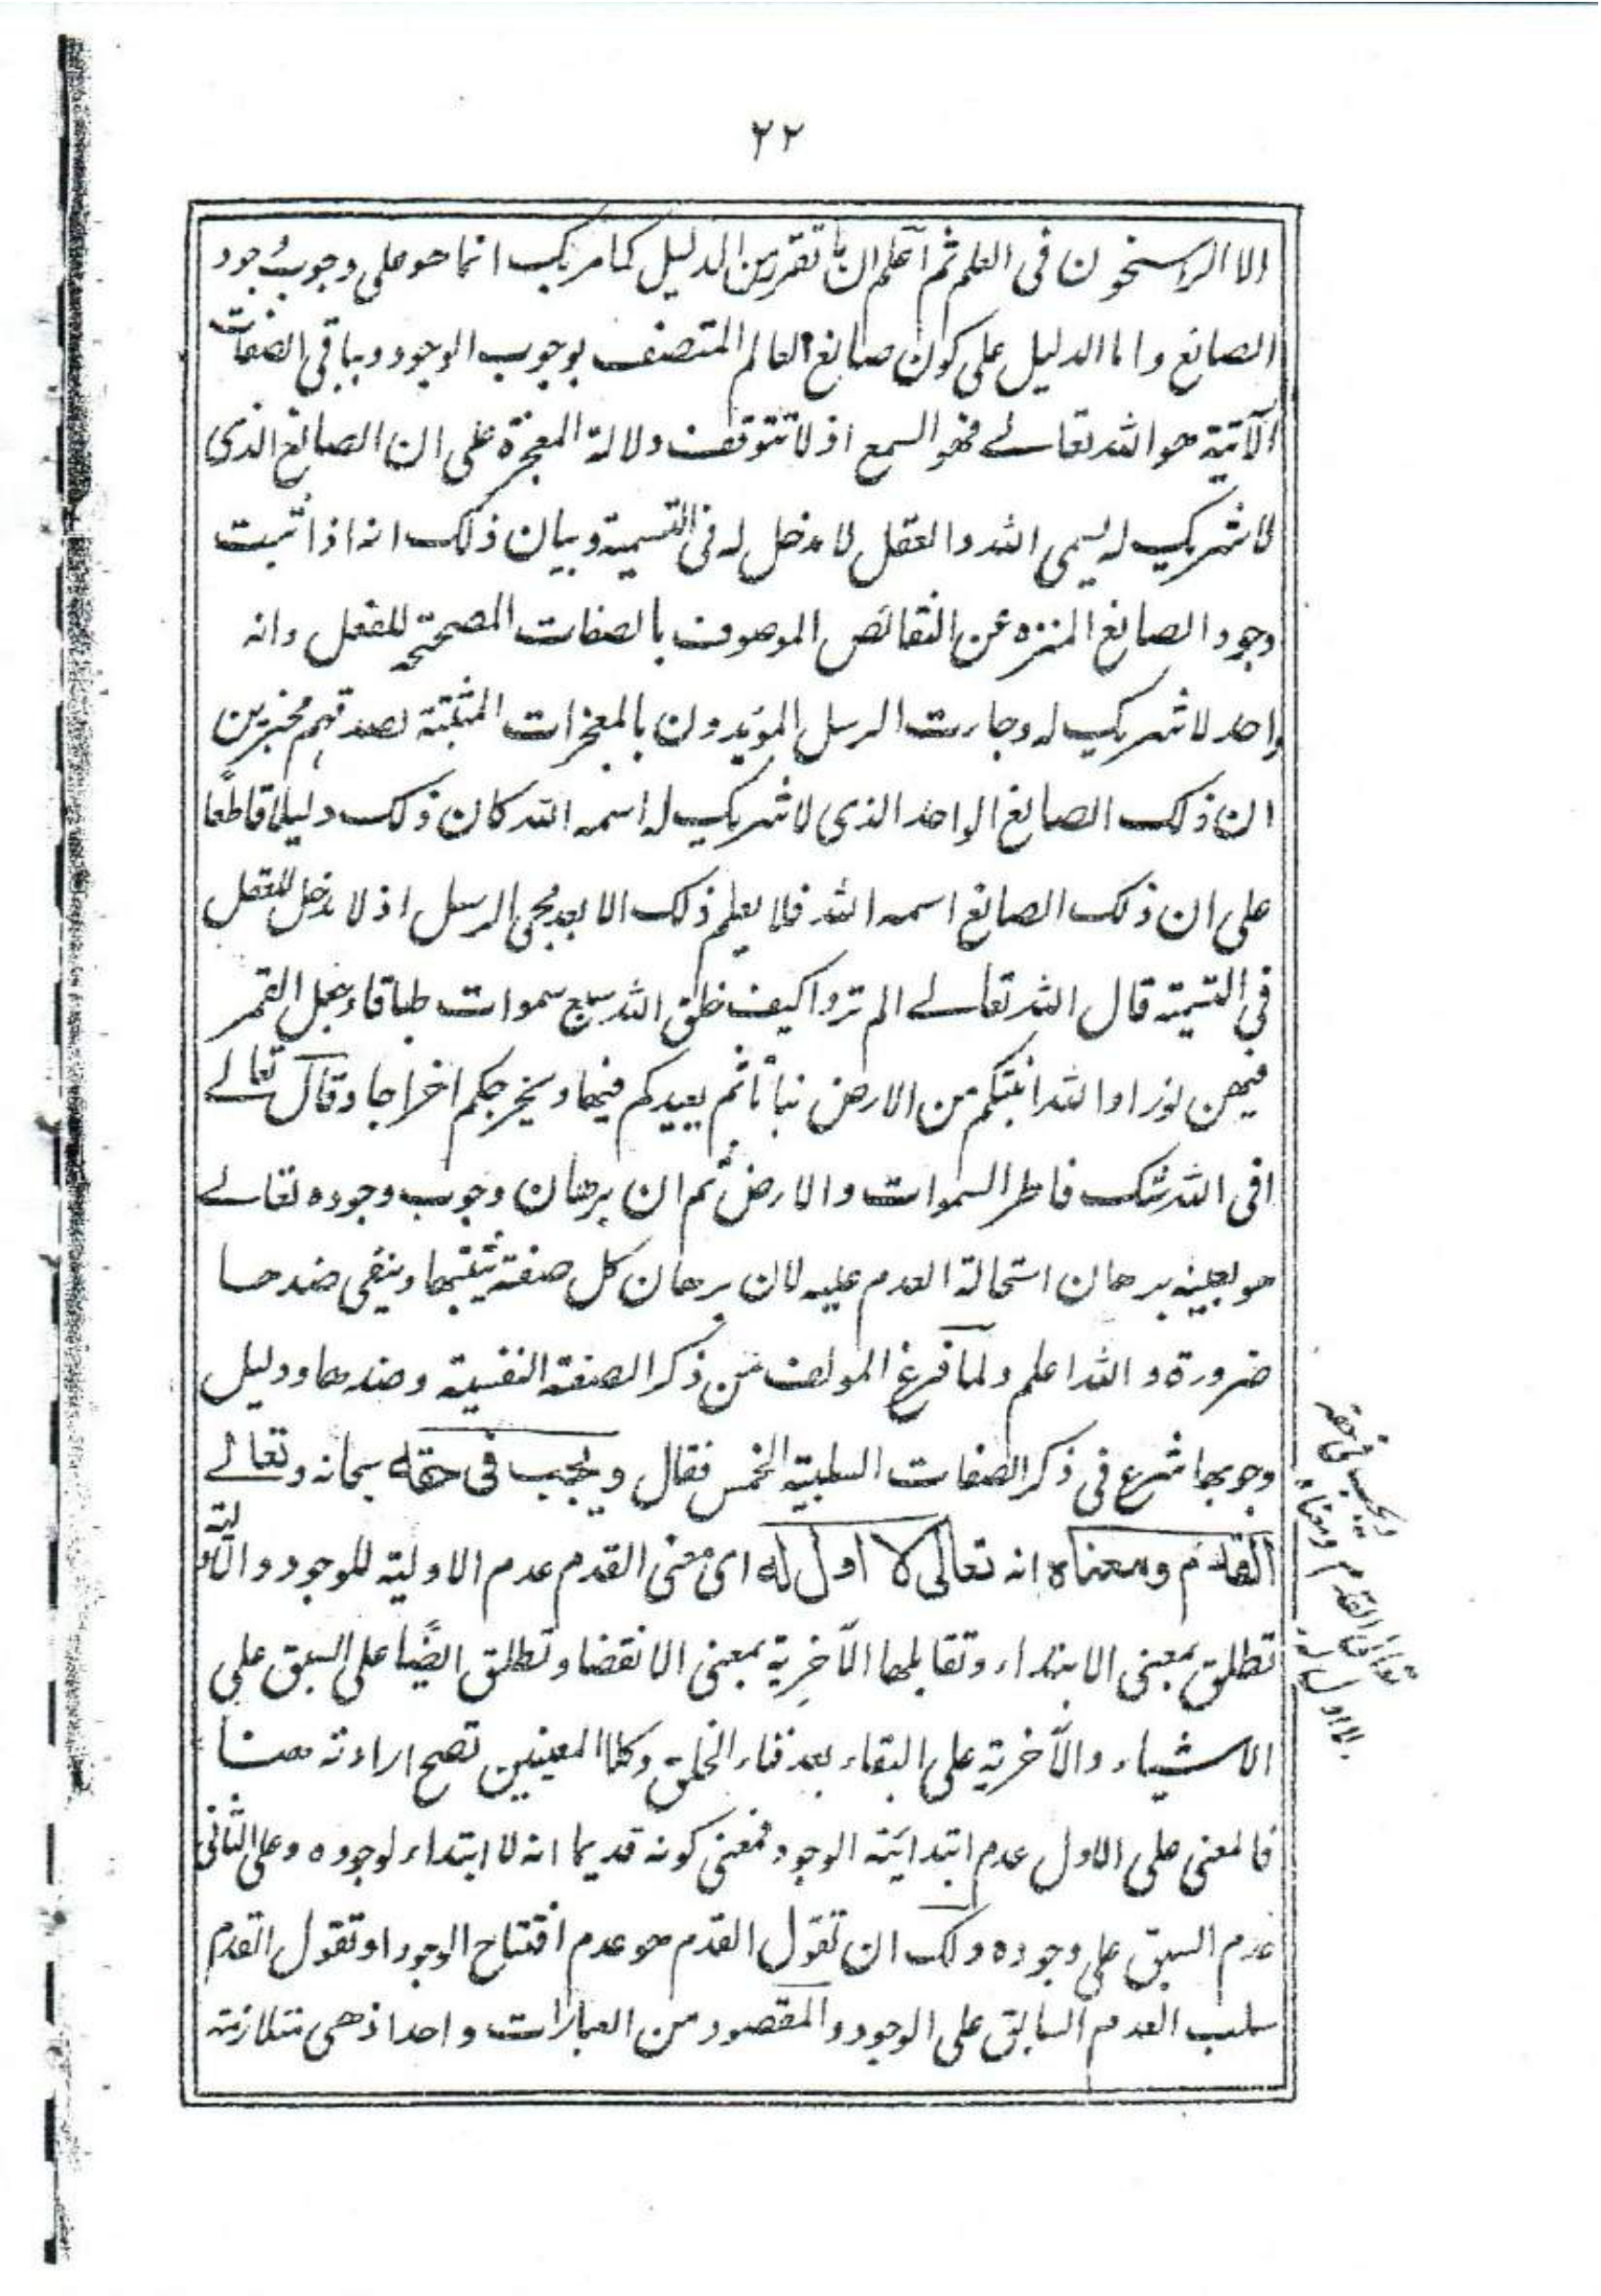 ٢٢
الا الرسخون فى العلم ثم اعلم ان ما تقرر من الدليل كما مر بك انما هو على وجوب وجود
الصانع واما الدليل على كون صانع العالم المتصف بوجوب الوجود وبباقى الصفات
الآتية هو الله تعالے فهو السمع اذ لا تتوقف دلالة المعجزة على ان الصانع الذى
لا شريك له يسمى الله والعقل لا مدخل له فى التسمية وبيان ذلك انه اذا ثبت
وجود الصانع المنزه عن النقائص الموصوف بالصفات المصححة للفعل وانه
واحد لا شريك له وجاءت الرسل المؤيدون بالمعجزات المثبتة لصدقهم مخبرين
ان ذلك الصانع الواحد الذى لا شريك له اسمه الله كان ذلك دليلا قاطعًا
على ان ذلك الصانع اسمه الله فلا يعلم ذلك الا بعد مجئ الرسل اذ لا مدخل للعقل
فى التسمية قال الله تعالے الم تروا كيف خلق الله سبع سموات طباقا وجعل القمر
فيهن نورا والله انبتكم من الارض نباتًا ثم يعيدكم فيها ويخرجكم اخراجا وقال تعالے
افى الله شك فاطر السموات والارض ثم ان برهان وجوب وجوده تعالے
هو بعينه برهان استحالة العدم عليه لان برهان كل صفة يثبتها وينفى ضدها
ضرورة والله اعلم ولما فرغ المولف من ذكر الصفة النفسية وضدها ودليل
وجوبها شرع فى ذكر الصفات السلبية الخمس فقال ويجب فى حقه سبحانه وتعالے
القدم ومعناه انه تعالى لا اول له اى معنى القدم عدم الاولية للموجود والاولية
تطلق بمعنى الابتداء وتقابلها الآخِرية بمعنى الانقضا وتطلق ايضًا على السبق على
الاشياء والآخرية على البقاء بعد فناء الخلق وكلا المعنيين تصح ارادته هنا
فالمعنى على الاول عدم ابتدائية الوجود فمعنى كونه قديما انه لا ابتداء لوجوده وعلى الثانى
عدم السبق على وجوده ولك ان تقول القدم هو عدم افتتاح الوجود او تقول القدم
سلب العدم السابق على الوجود والمقصود من العبارات واحد اذ هى متلازمة
ويجب فى حقه
تعالى القدم ومعناه